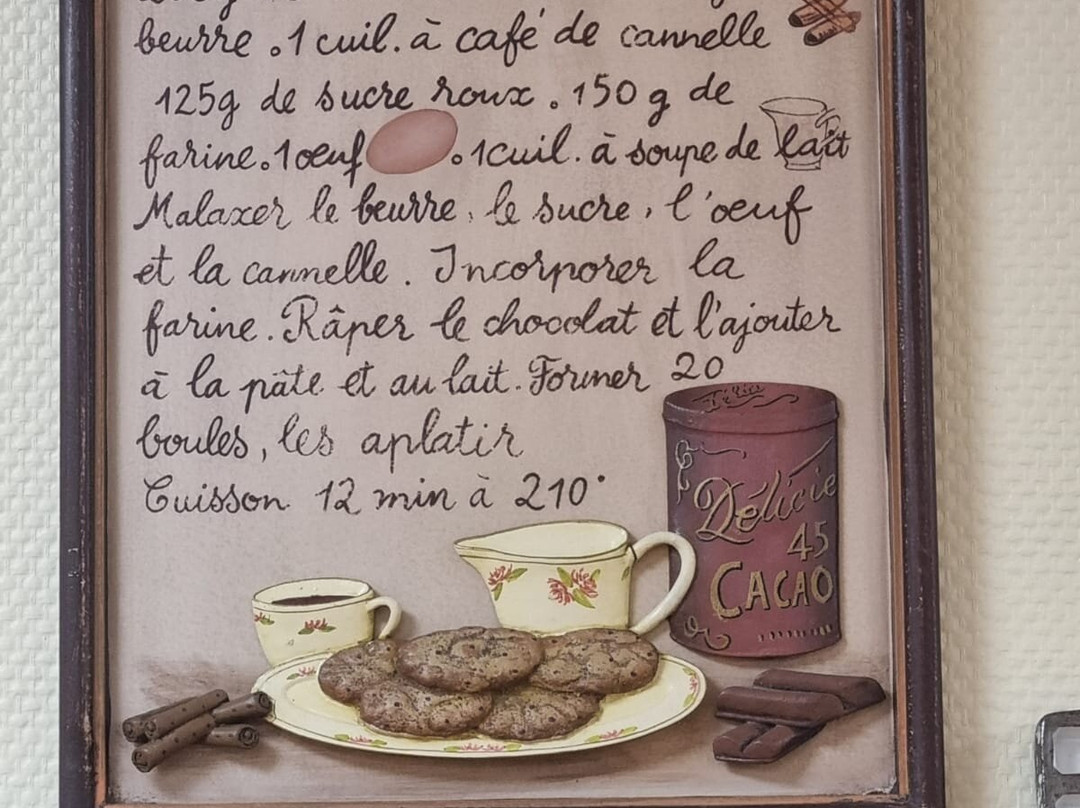 beurre . 1 cuil. à café de cannelle
125g de sucre roux . 150 g de
farine . 1 oeuf . 1 cuil. à soupe de lait
Malaxer le beurre, le sucre, l'oeuf
et la cannelle . Incorporer la
farine . Râper le chocolat et l'ajouter
à la pâte et au lait . Former 20
boules, les aplatir
Cuisson 12 min à 210°
Délicie
45
CACAO